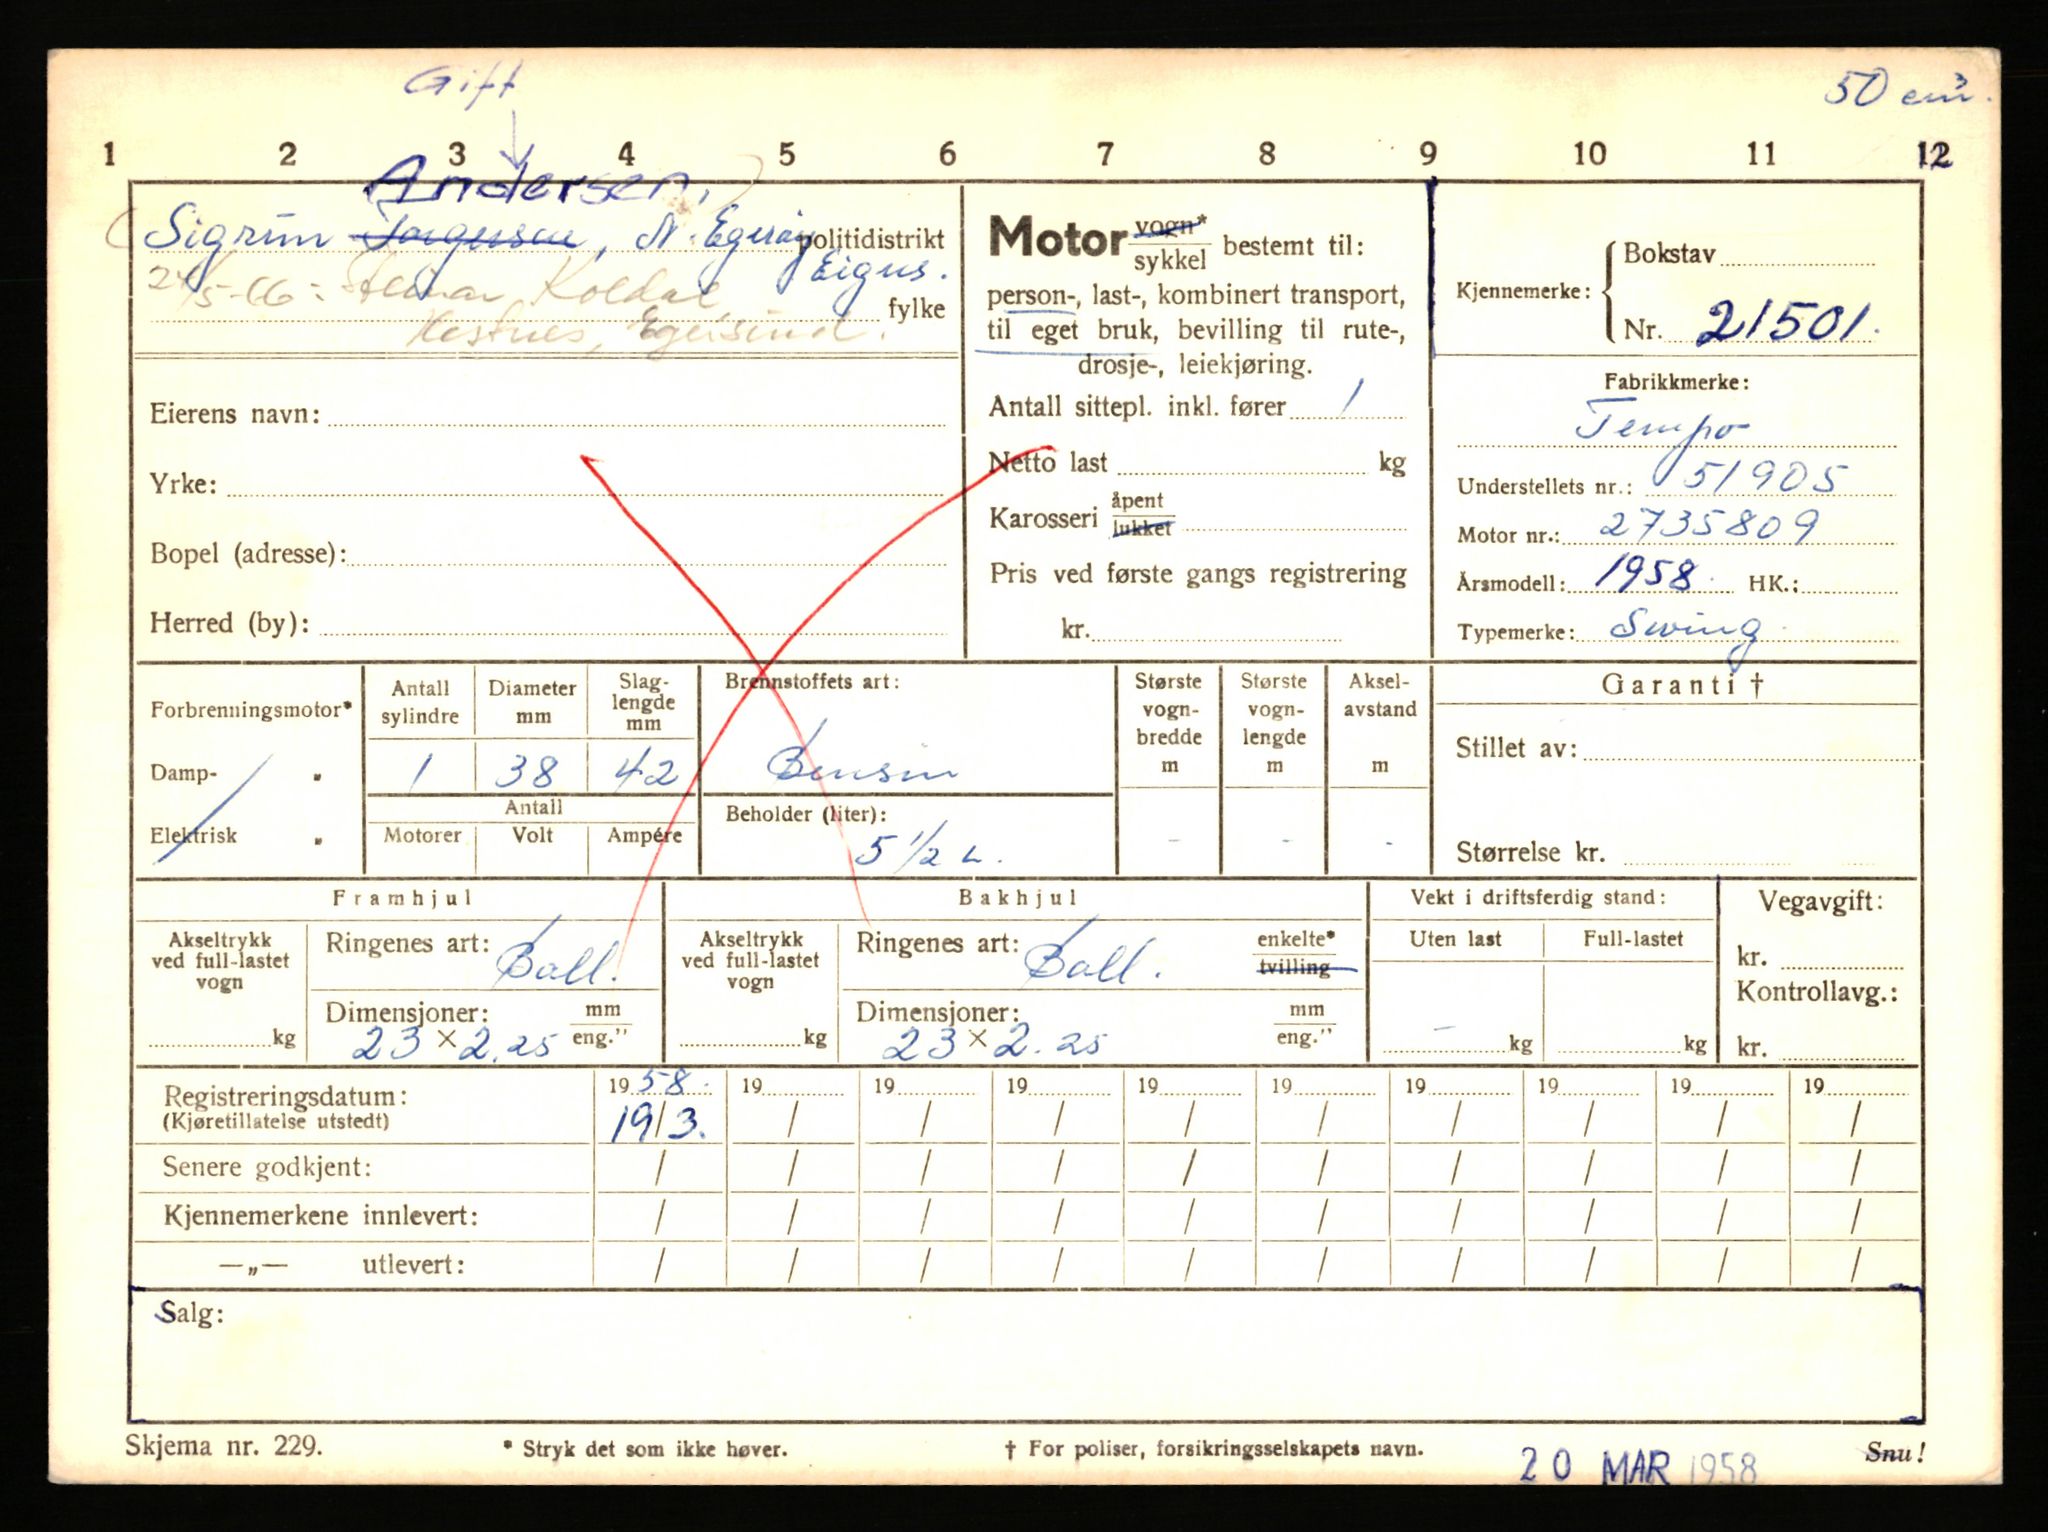 Gift
50 cm³.
1 2 3 4 5 6 7 8 9 10 11 12
Andersen,
Sigrun Torgersen, N. Egerøy politidistrikt
Eigus.
24/5-66: Koldal fylke
Hestnes, Egersund.
Eierens navn:
Yrke:
Bopel (adresse):
Herred (by):
Motor vogn* sykkel bestemt til:
person-, last-, kombinert transport,
til eget bruk, bevilling til rute-,
drosje-, leiekjøring.
Antall sittepl. inkl. fører 1
Netto last kg
Karosseri åpent lukket
Pris ved første gangs registrering
kr.
Kjennemerke: Bokstav
Nr. 21501.
Fabrikkmerke:
Tempo
Understellets nr.: 51905
Motor nr.: 2735809
Årsmodell: 1958. HK.:
Typemerke: Swing
Forbrenningsmotor*
Damp- "
Elektrisk "
Antall sylindre
Diameter mm
Slag-
lengde
mm
1 38 42
Antall
Motorer Volt Ampére
Brennstoffets art:
Bensin
Beholder (liter):
5 1/2 L.
Største
vogn-
bredde
m
-
Største
vogn-
lengde
m
-
Aksel-
avstand
m
-
Garanti †
Stillet av:
Størrelse kr.
Framhjul
Akseltrykk
ved full-lastet
vogn
kg
Ringenes art: Ball.
Dimensjoner: mm
23 × 2.25 eng."
Bakhjul
Akseltrykk
ved full-lastet
vogn
kg
Ringenes art: Ball. enkelte* tvilling
Dimensjoner: mm
23 × 2.25 eng."
Vekt i driftsferdig stand:
Uten last Full-lastet
- kg kg
Vegavgift:
kr.
Kontrollavg.:
kr.
Registreringsdatum: 19 58. 19 19 19 19 19 19 19 19 19
(Kjøretillatelse utstedt) 19/3. / / / / / / / / /
Senere godkjent: / / / / / / / / / /
Kjennemerkene innlevert: / / / / / / / / / /
—„— utlevert: / / / / / / / / / /
Salg:
Skjema nr. 229. * Stryk det som ikke høver. † For poliser, forsikringsselskapets navn. 20 MAR 1958 Snu!